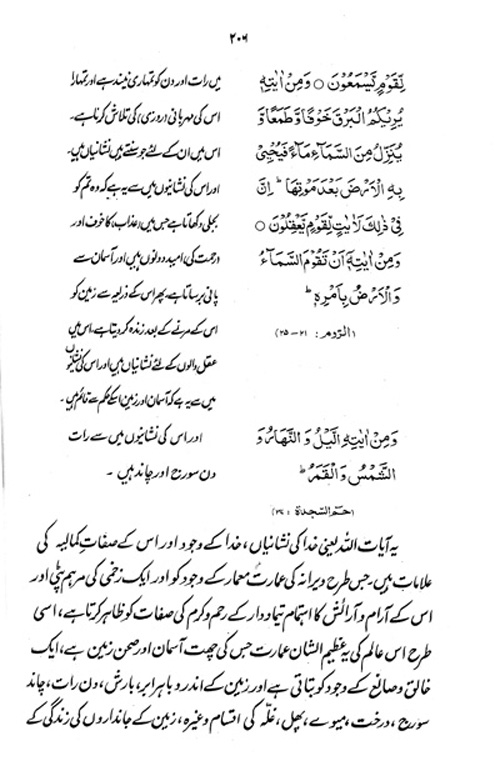 ۲۰۶
لِّقَوْمٍ یَّسْمَعُوْنَ ○ وَمِنْ اٰیٰتِهٖ
یُرِیْكُمُ الْبَرْقَ خَوْفًا وَّطَمَعًا وَّ
یُنَزِّلُ مِنَ السَّمَآءِ مَآءً فَیُحْیٖ
بِهِ الْاَرْضَ بَعْدَ مَوْتِهَا ؕ اِنَّ
فِیْ ذٰلِكَ لَاٰیٰتٍ لِّقَوْمٍ یَّعْقِلُوْنَ ○
وَمِنْ اٰیٰتِهٖۤ اَنْ تَقُوْمَ السَّمَآءُ
وَالْاَرْضُ بِاَمْرِهٖ ؕ
(الرّوم : ۲۱–۲۵)
میں رات اور دن کو تمہاری نیند ہے اور تمہارا
اس کی مہربانی (روزی) کی تلاش کرنا ہے۔
اس میں ان کے لئے جو سنتے ہیں نشانیاں ہیں۔
اور اس کی نشانیوں میں سے یہ ہے کہ وہ تم کو
بجلی دکھاتا ہے جس میں (عذاب) کا خوف اور
(رحمت کی) امید دونوں ہیں اور آسمان سے
پانی برساتا ہے پھر اس کے ذریعہ سے زمین کو
اس کے مرنے کے بعد زندہ کر دیتا ہے، اس میں
عقل والوں کے لئے نشانیاں ہیں اور اس کی نشانیوں
میں سے یہ ہے کہ آسمان اور زمین اسکے حکم سے قائم ہیں۔
وَمِنْ اٰیٰتِهِ الَّیْلُ وَ النَّهَارُ وَ
الشَّمْسُ وَ الْقَمَرُ ؕ
(حٰمٓ السّجدة : ۳۷)
اور اس کی نشانیوں میں سے رات
دن سورج اور چاند ہیں ۔
یہ آیات اللہ یعنی خدا کی نشانیاں، خدا کے وجود اور اس کے صفات کمالیہ کی
علامات ہیں، جس طرح ویرانہ کی عمارت معمار کے وجود کو اور ایک زخمی کی مرہم پٹی اور
اس کے آرام و آرائش کا اہتمام تیماردار کے رحم و کرم کی صفات کو ظاہر کرتا ہے، اسی
طرح اس عالم کی یہ عظیم الشان عمارت جس کی چھت آسمان اور صحن زمین ہے، ایک
خالق و صانع کے وجود کو بتاتی ہے اور زمین کے اندر و باہر ابر، بارش، دن رات، چاند
سورج، درخت، میوے، پھل، غلّہ کی اقسام وغیرہ، زمین کے جانداروں کی زندگی کے